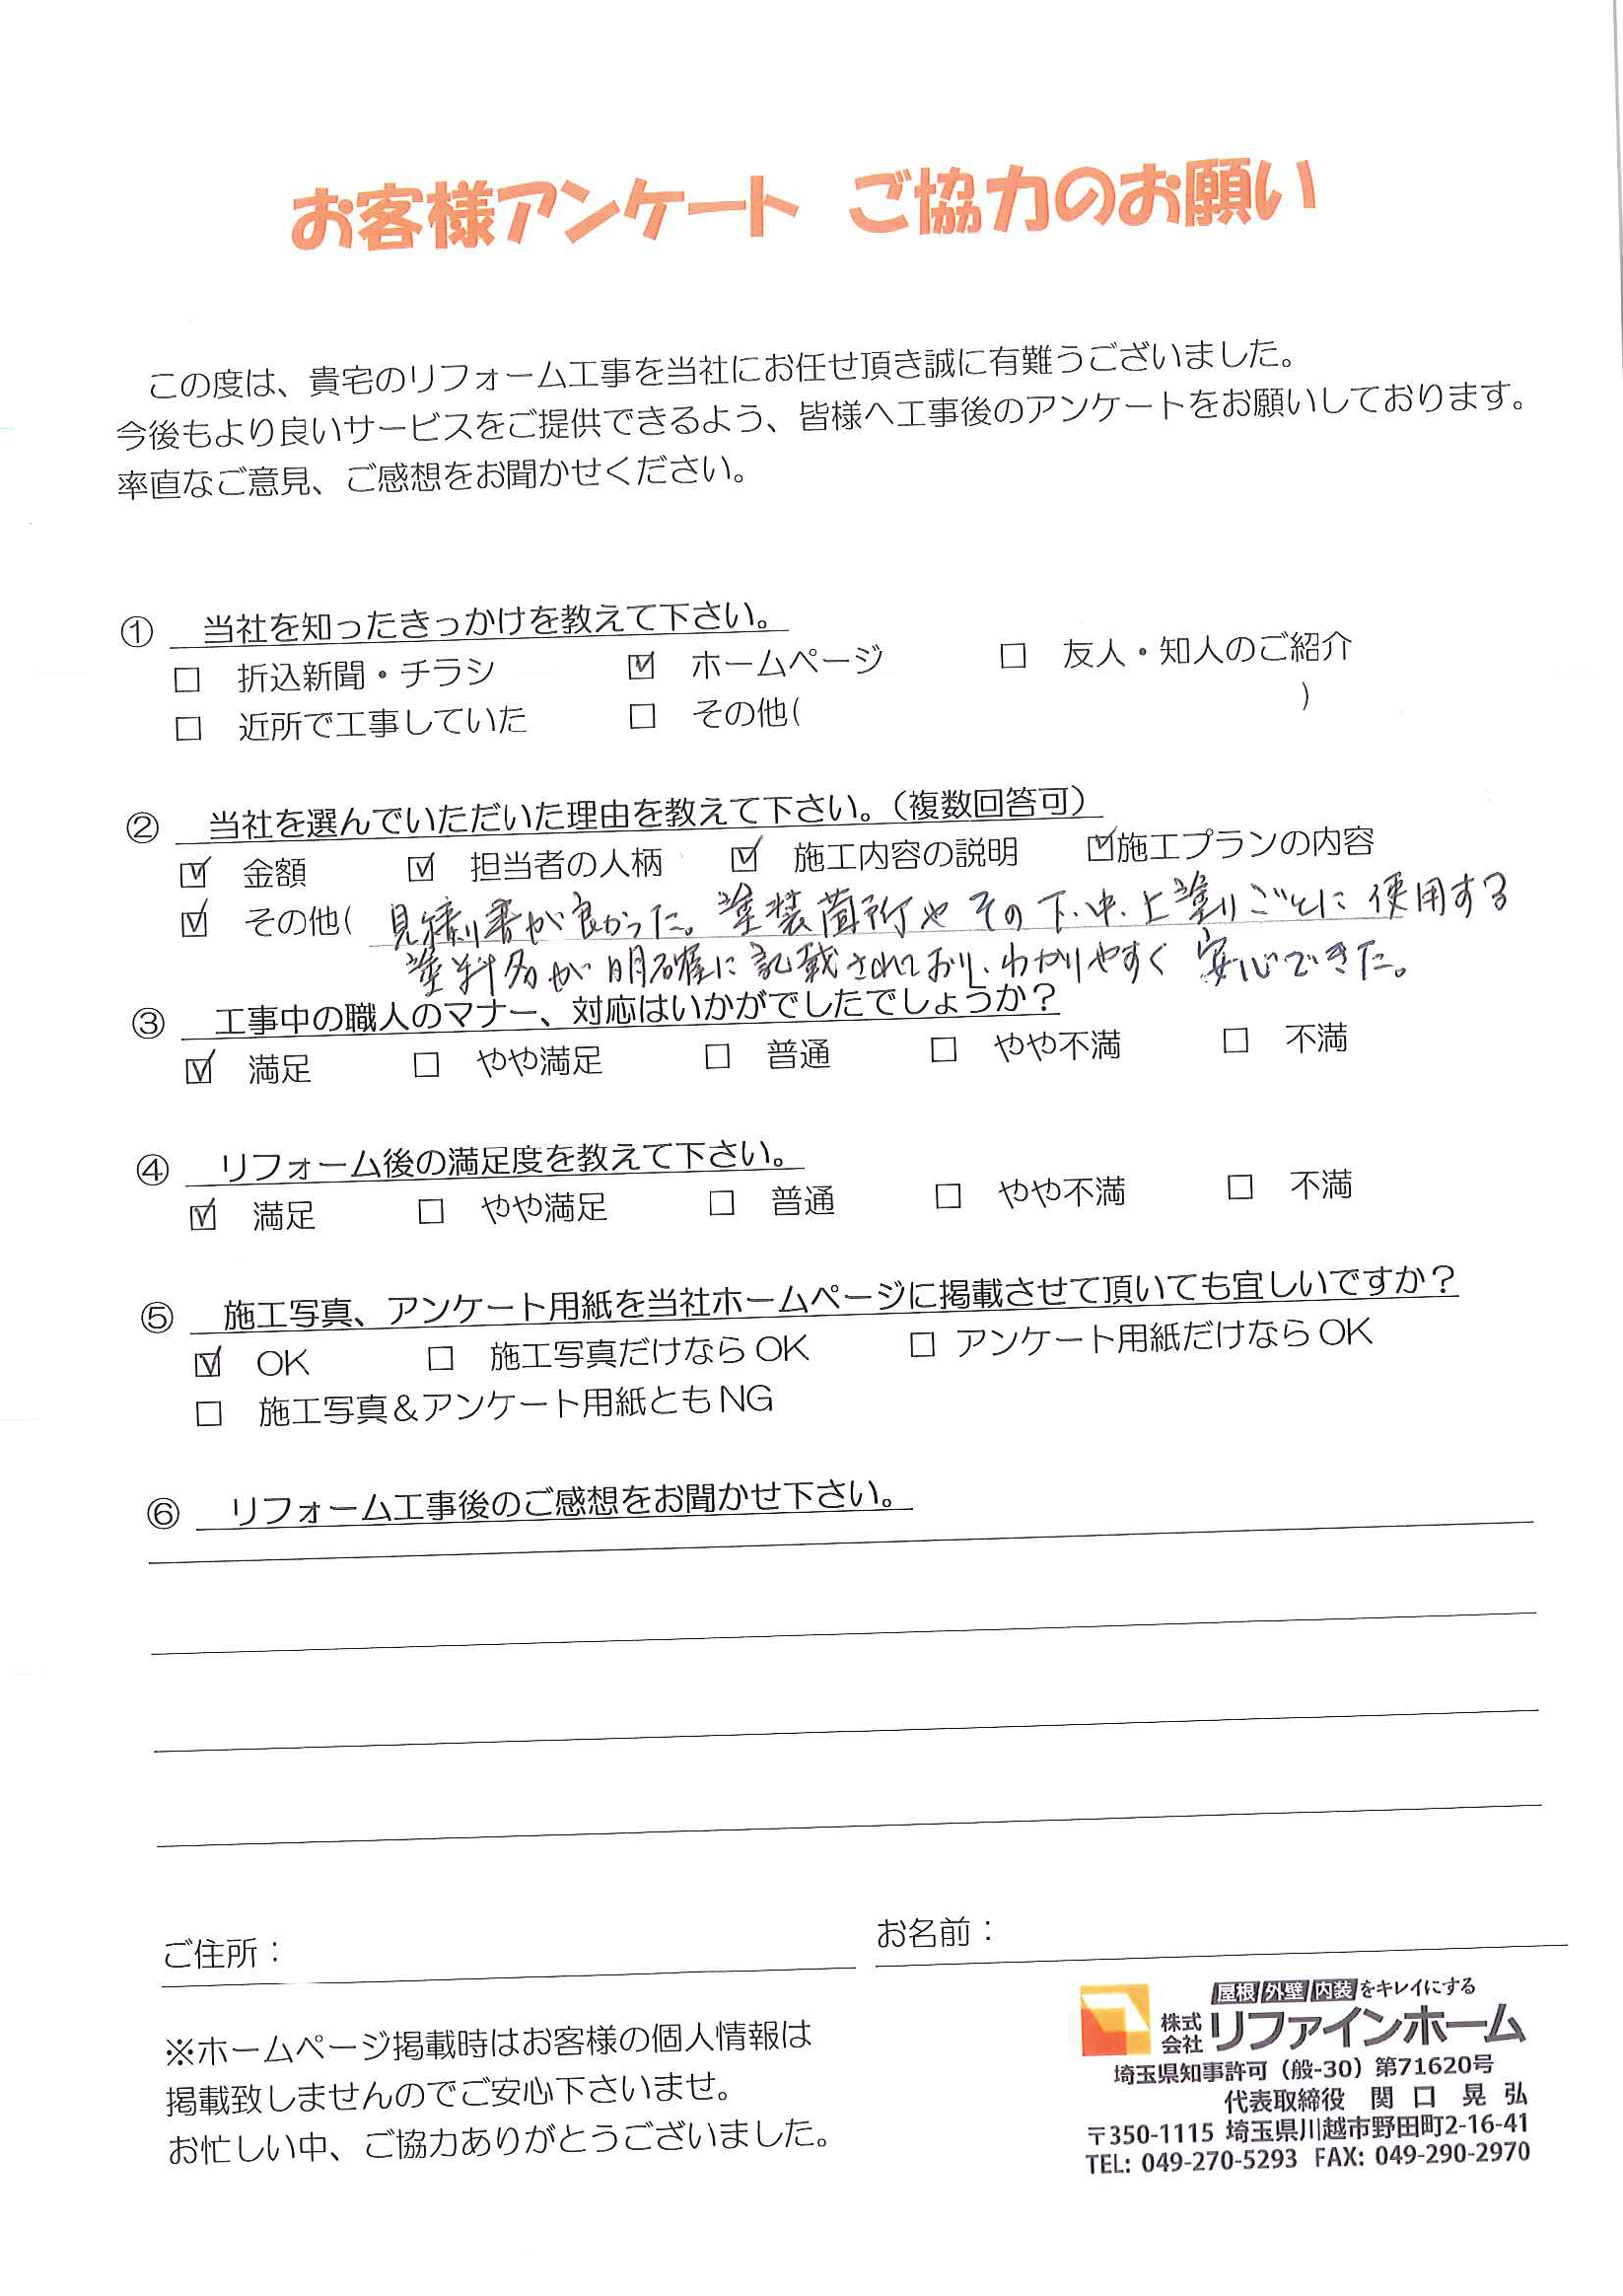 お客様アンケート ご協力のお願い
この度は、貴宅のリフォーム工事を当社にお任せ頂き誠に有難うございました。
今後もより良いサービスをご提供できるよう、皆様へ工事後のアンケートをお願いしております。
率直なご意見、ご感想をお聞かせください。
① 当社を知ったきっかけを教えて下さい。
□ 折込新聞・チラシ ☑ ホームページ □ 友人・知人のご紹介
□ 近所で工事していた □ その他( )
② 当社を選んでいただいた理由を教えて下さい。(複数回答可)
☑ 金額 ☑ 担当者の人柄 ☑ 施工内容の説明 ☑施工プランの内容
☑ その他( 見積り書が良かった。塗装箇所やその下・中・上塗りごとに使用する
塗料名が明確に記載されており、わかりやすく安心できた。
③ 工事中の職人のマナー、対応はいかがでしたでしょうか?
☑ 満足 □ やや満足 □ 普通 □ やや不満 □ 不満
④ リフォーム後の満足度を教えて下さい。
☑ 満足 □ やや満足 □ 普通 □ やや不満 □ 不満
⑤ 施工写真、アンケート用紙を当社ホームページに掲載させて頂いても宜しいですか?
☑ OK □ 施工写真だけならOK □ アンケート用紙だけならOK
□ 施工写真&アンケート用紙ともNG
⑥ リフォーム工事後のご感想をお聞かせ下さい。
ご住所: お名前:
※ホームページ掲載時はお客様の個人情報は
掲載致しませんのでご安心下さいませ。
お忙しい中、ご協力ありがとうございました。
屋根 外壁 内装をキレイにする
株式会社 リファインホーム
埼玉県知事許可(般-30)第71620号
代表取締役 関口晃弘
〒350-1115 埼玉県川越市野田町2-16-41
TEL: 049-270-5293 FAX: 049-290-2970